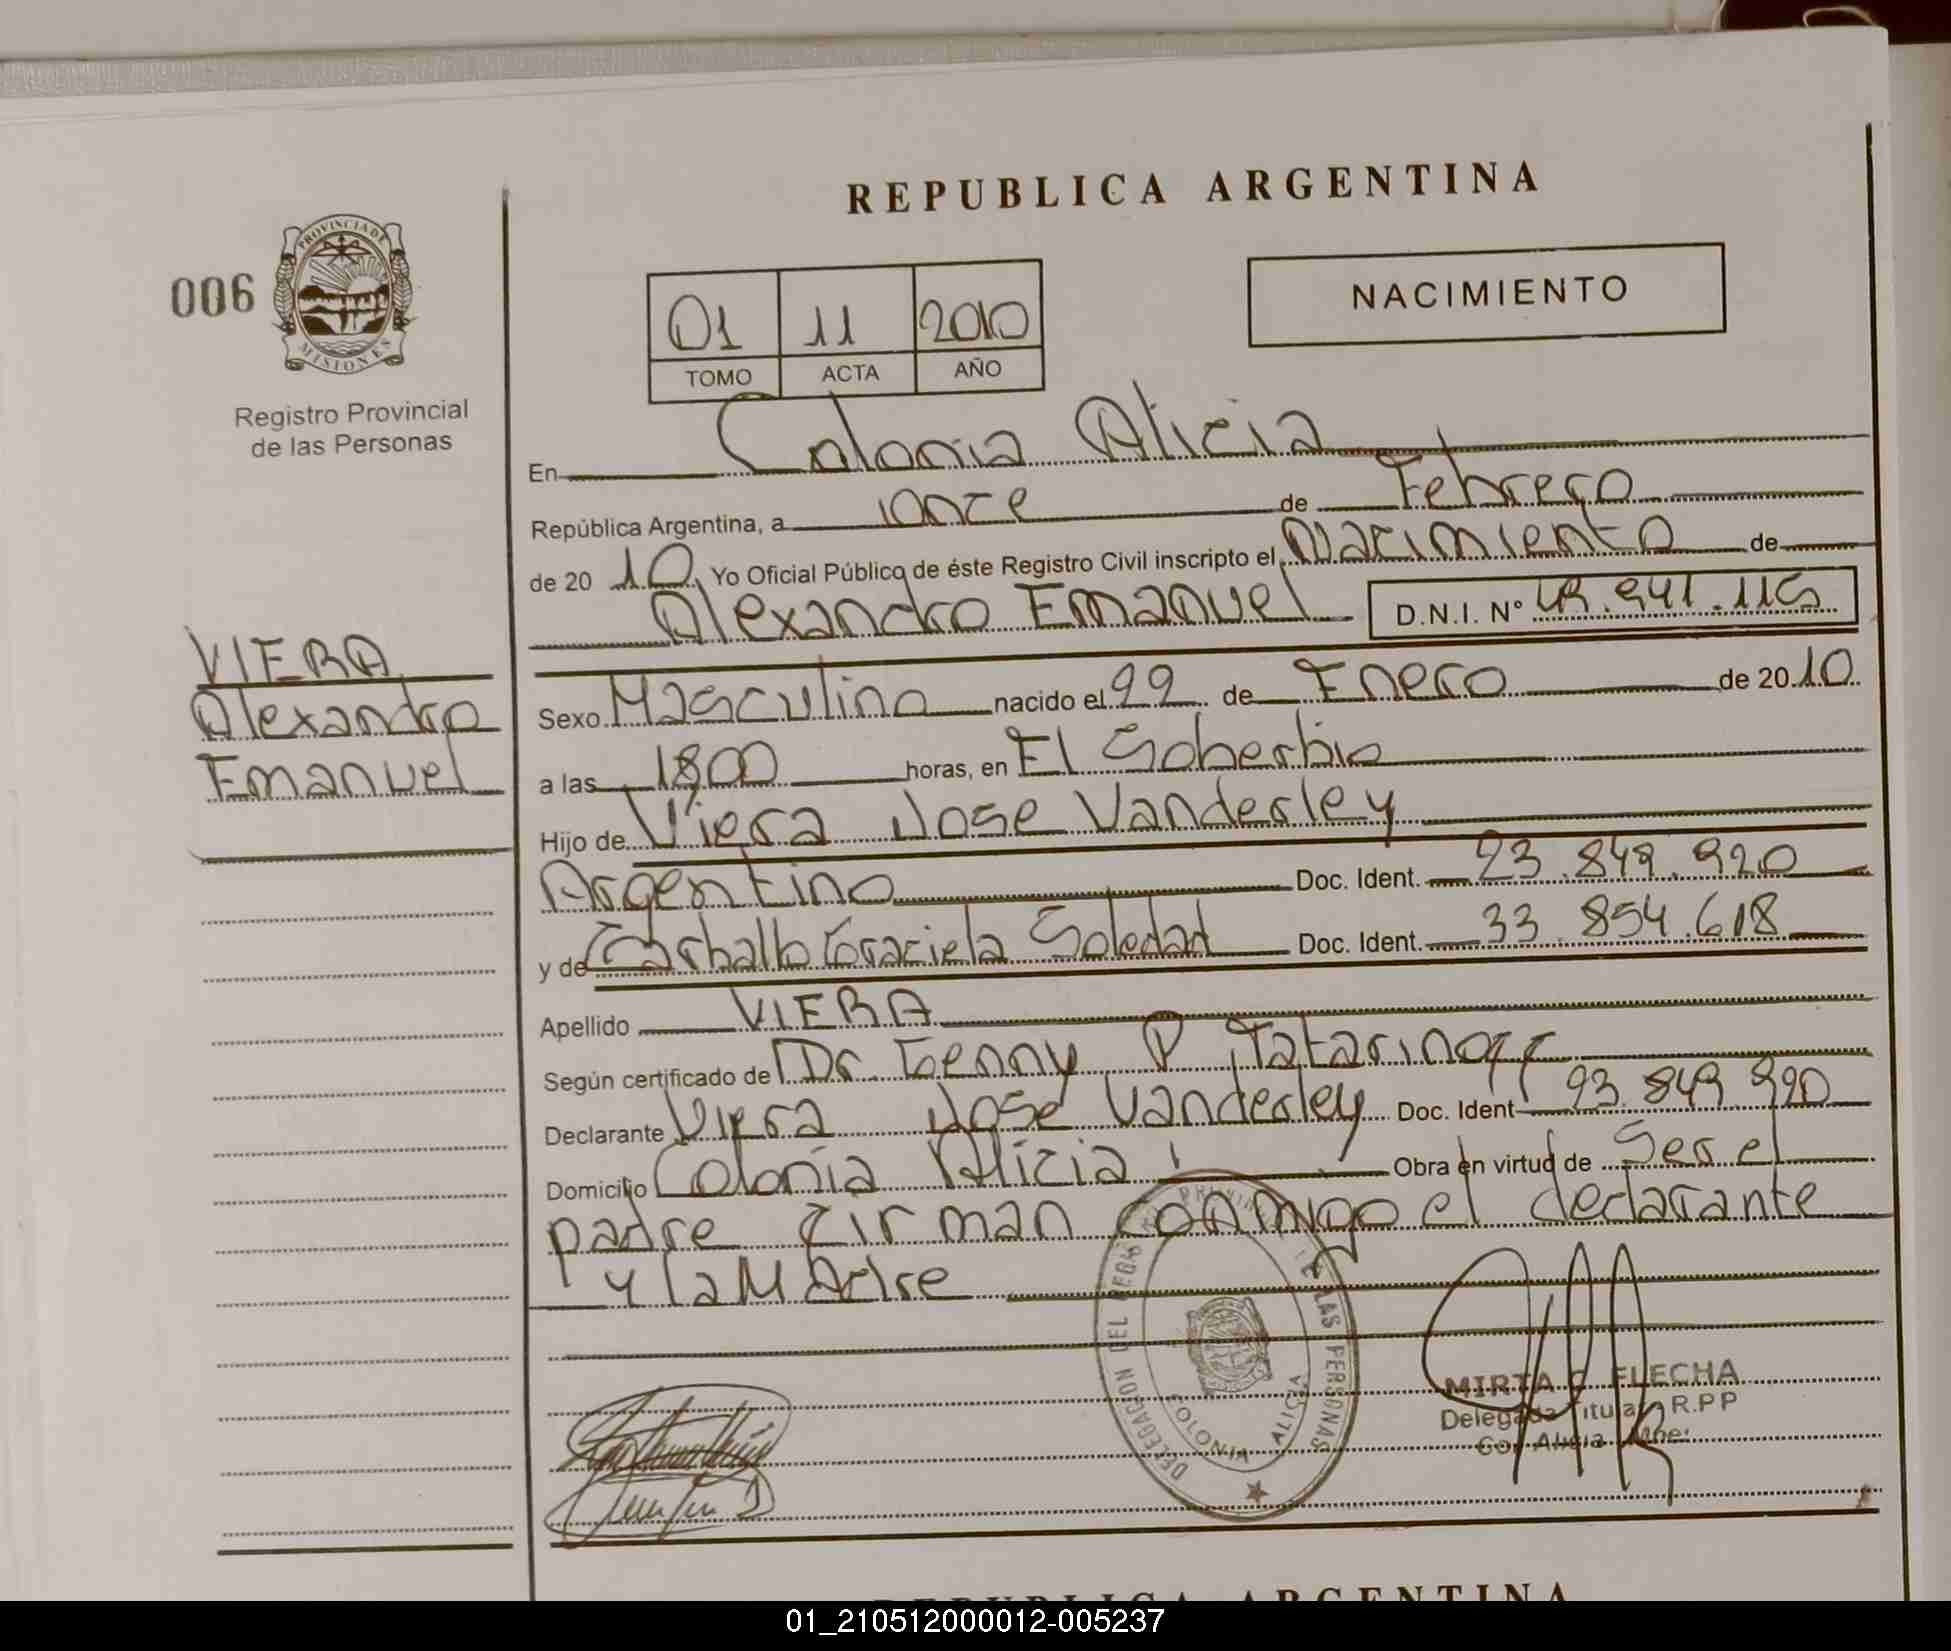 REPUBLICA ARGENTINA
006
PROVINCIA DE
MISIONES
Registro Provincial
de las Personas
01 11 2010
TOMO ACTA AÑO
NACIMIENTO
En Colonia Alicia
República Argentina, a once de Febrero
de 20 10 Yo Oficial Público de éste Registro Civil inscripto el Nacimiento de
Alexandro Emanuel D.N.I. Nº
VIERA
Alexandro
Emanuel
Sexo Masculino nacido el 22 de Enero de 20 10
a las 1800 horas, en El Soberbio
Hijo de Viera Jose Vanderley
Argentino Doc. Ident. 23.849.920
y de Carballo Graciela Soledad Doc. Ident. 33.854.618
Apellido VIERA
Según certificado de Dr. Genny P Tatarinoff
Declarante Viera Jose Vanderley Doc. Ident 23.849.920
Domicilio Colonia Alicia Obra en virtud de Ser el
padre Firman conmigo el declarante
y la Madre
DELEGACION DEL REG. LAS PERSONAS
COLONIA ALICIA
MIRTA FLECHA
Delegada Titular R.P.P
Col Alicia
REPUBLICA ARGENTINA
01_210512000012-005237